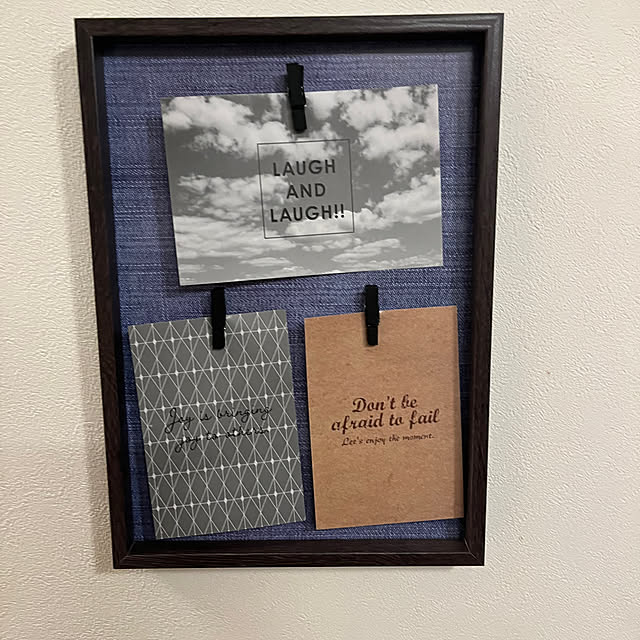 LAUGH
AND
LAUGH!!
Joy is bringing
joy to others.
Don't be
afraid to fail
Let's enjoy the moment.